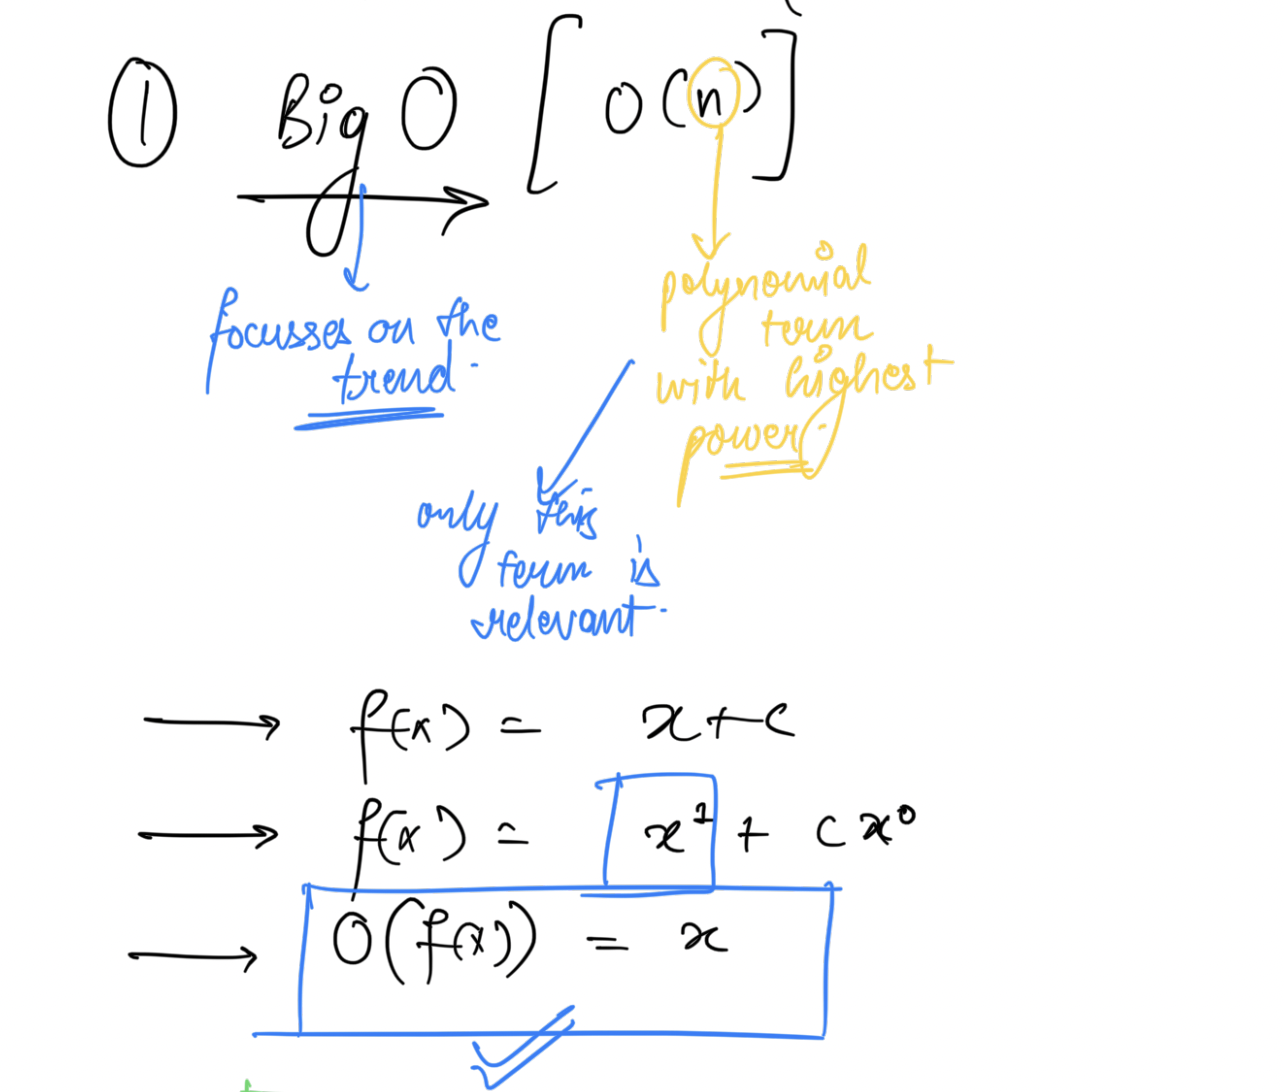 ① Big O [ O(n) ]
focusses on the
trend.
polynomial
term
with highest
power.
only this
term is
relevant.
→ f(x) = x+c
→ f(x) = x¹ + cx⁰
→ O(f(x)) = x